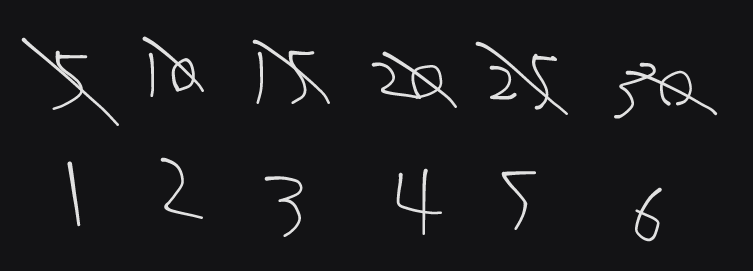 5 10 15 20 25 30
1 2 3 4 5 6